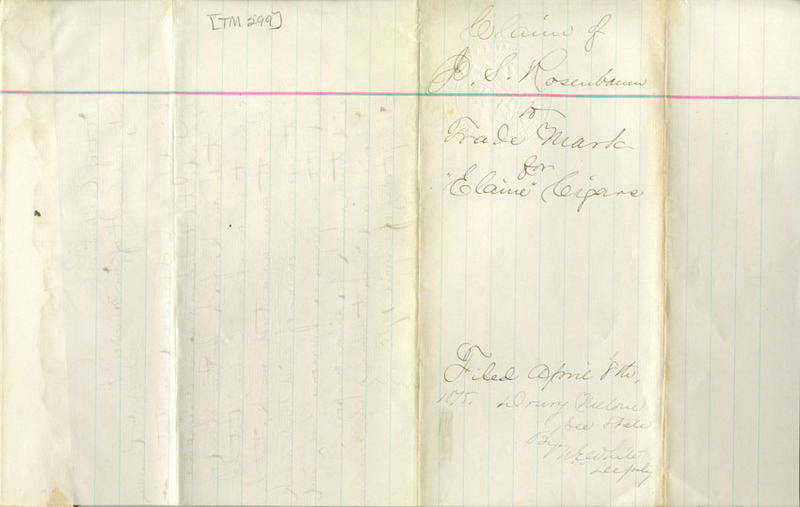 [TM 299]
Claim of
P. S. Rosenbaum
to
Trade Mark
for
"Elaine" Cigars
Filed April 8th,
1875. Drury Melone
Sec State
By
W.E. White
Deputy